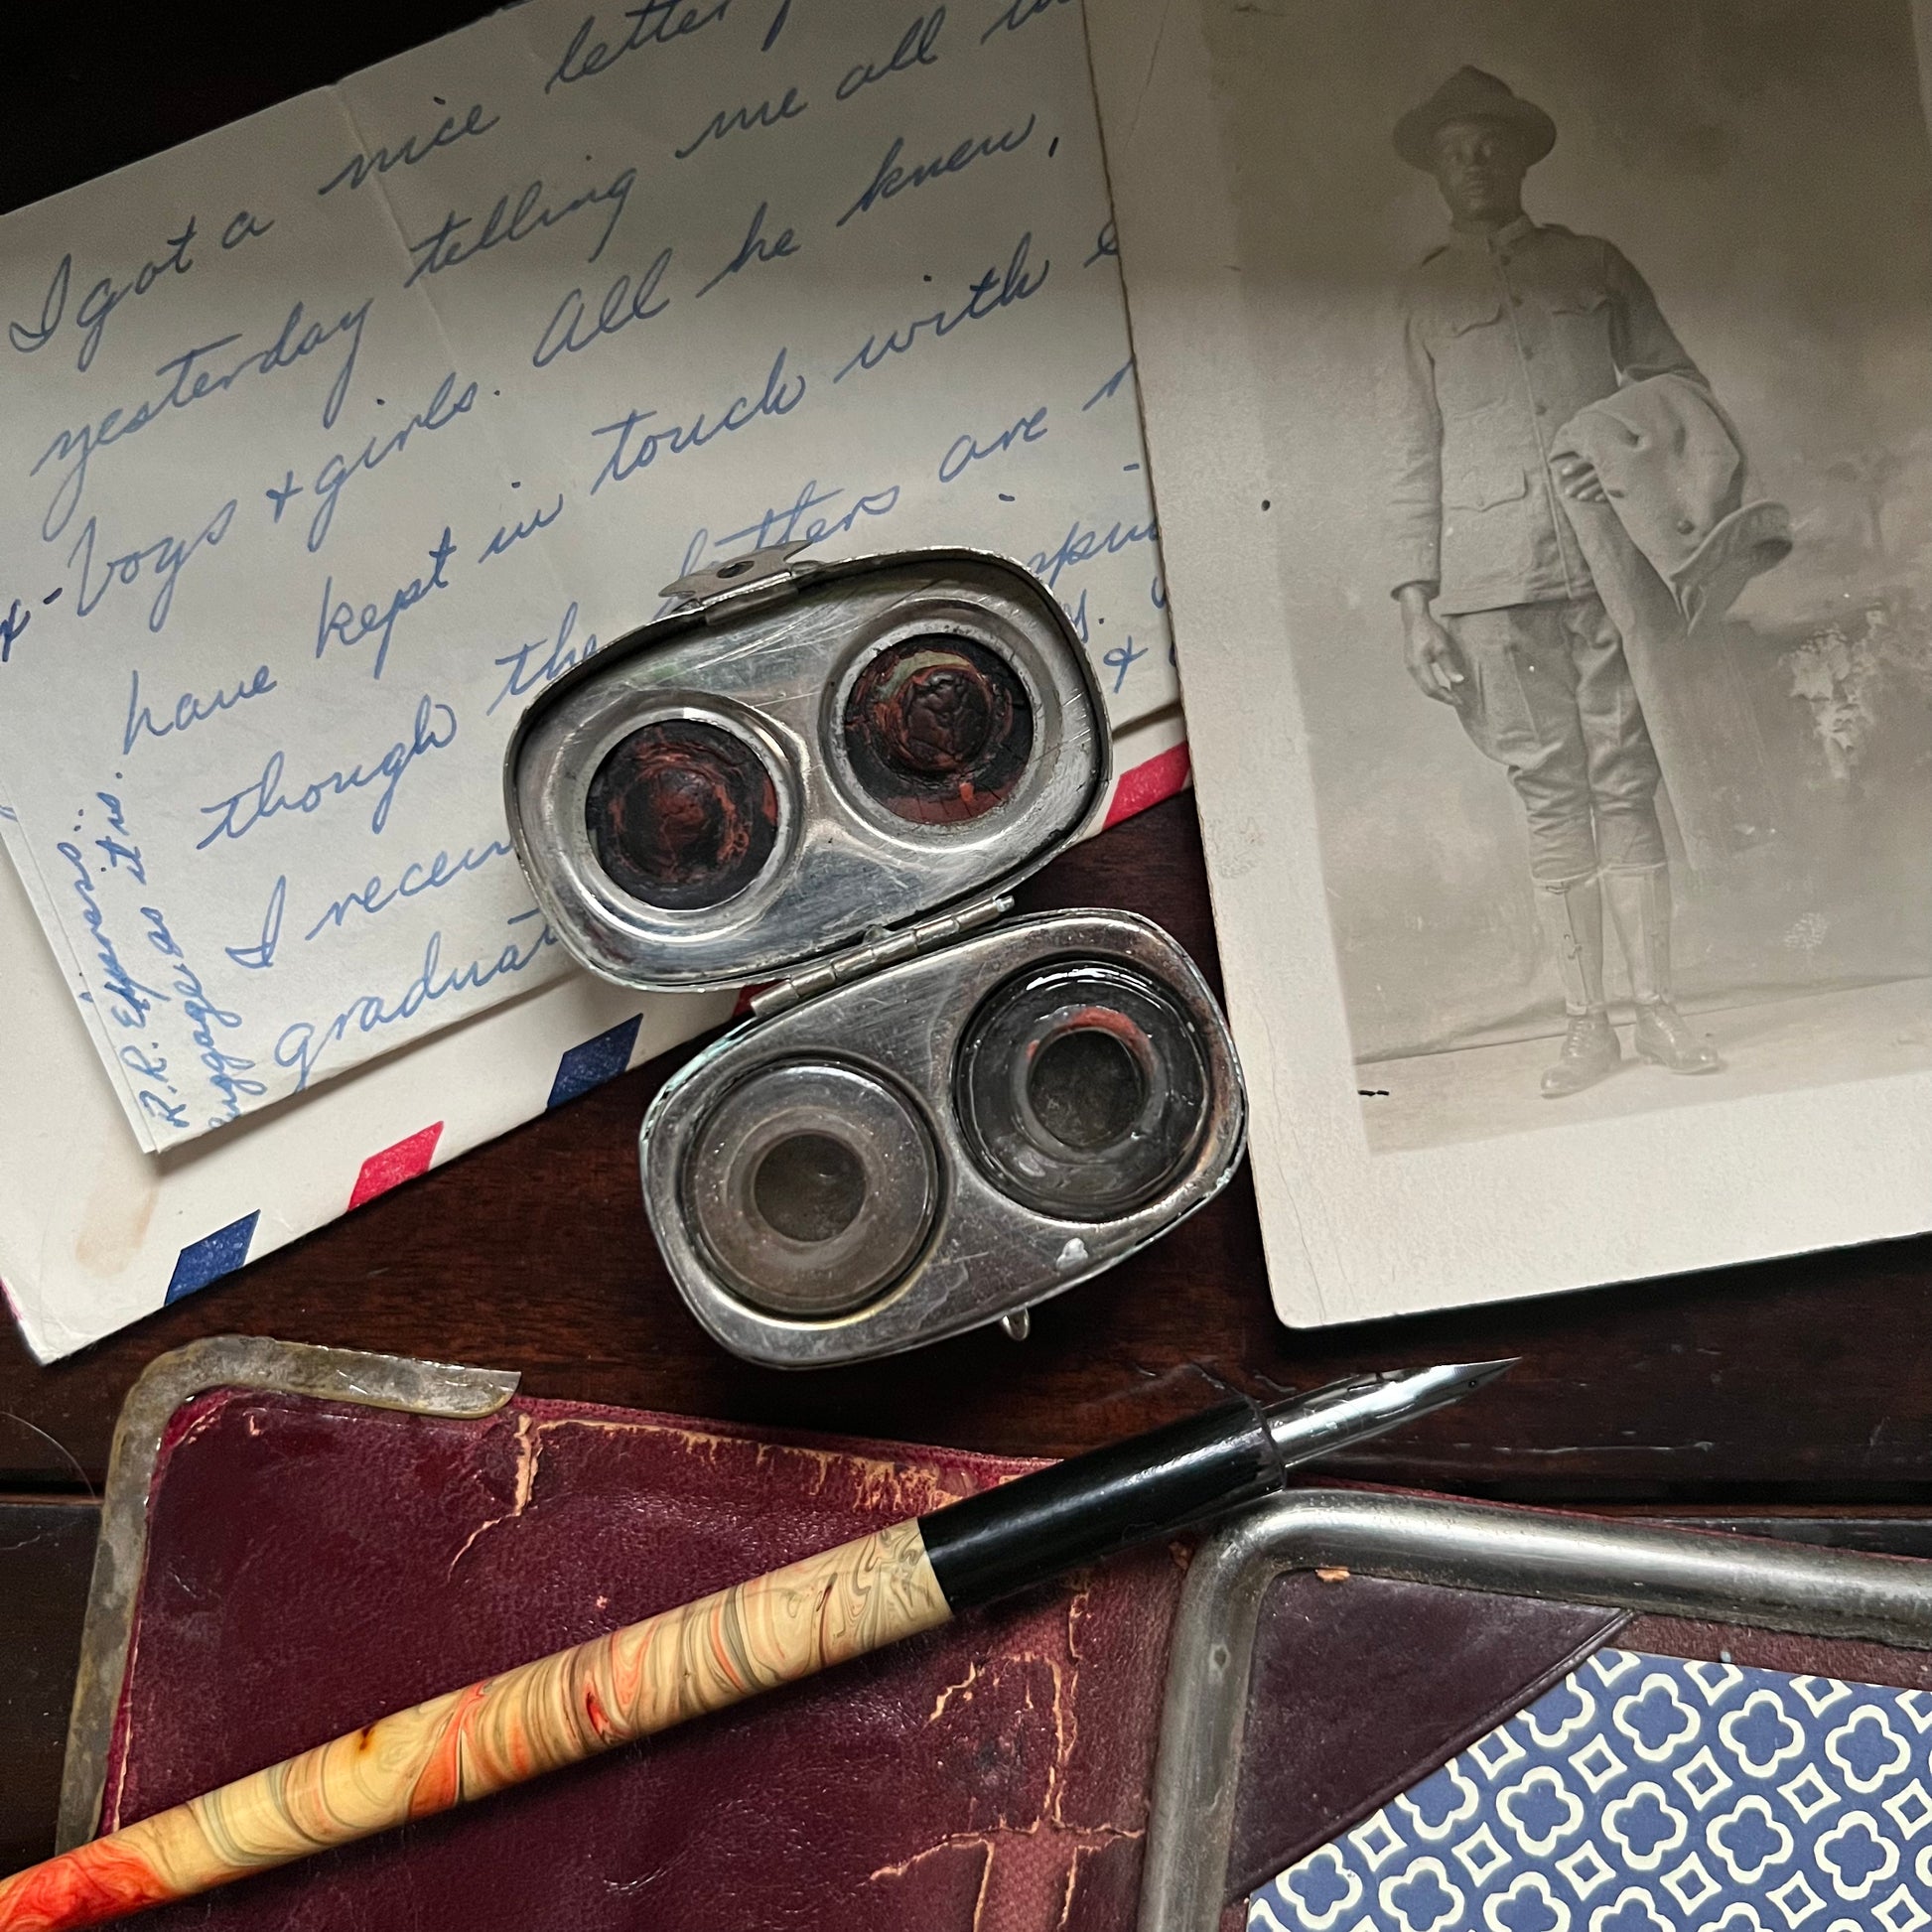 I got a nice letter
yesterday telling me all
x-boys & girls. All he knew,
have kept in touch with
though the letters are
I
graduat
&
R.P. Eppress
as it is.